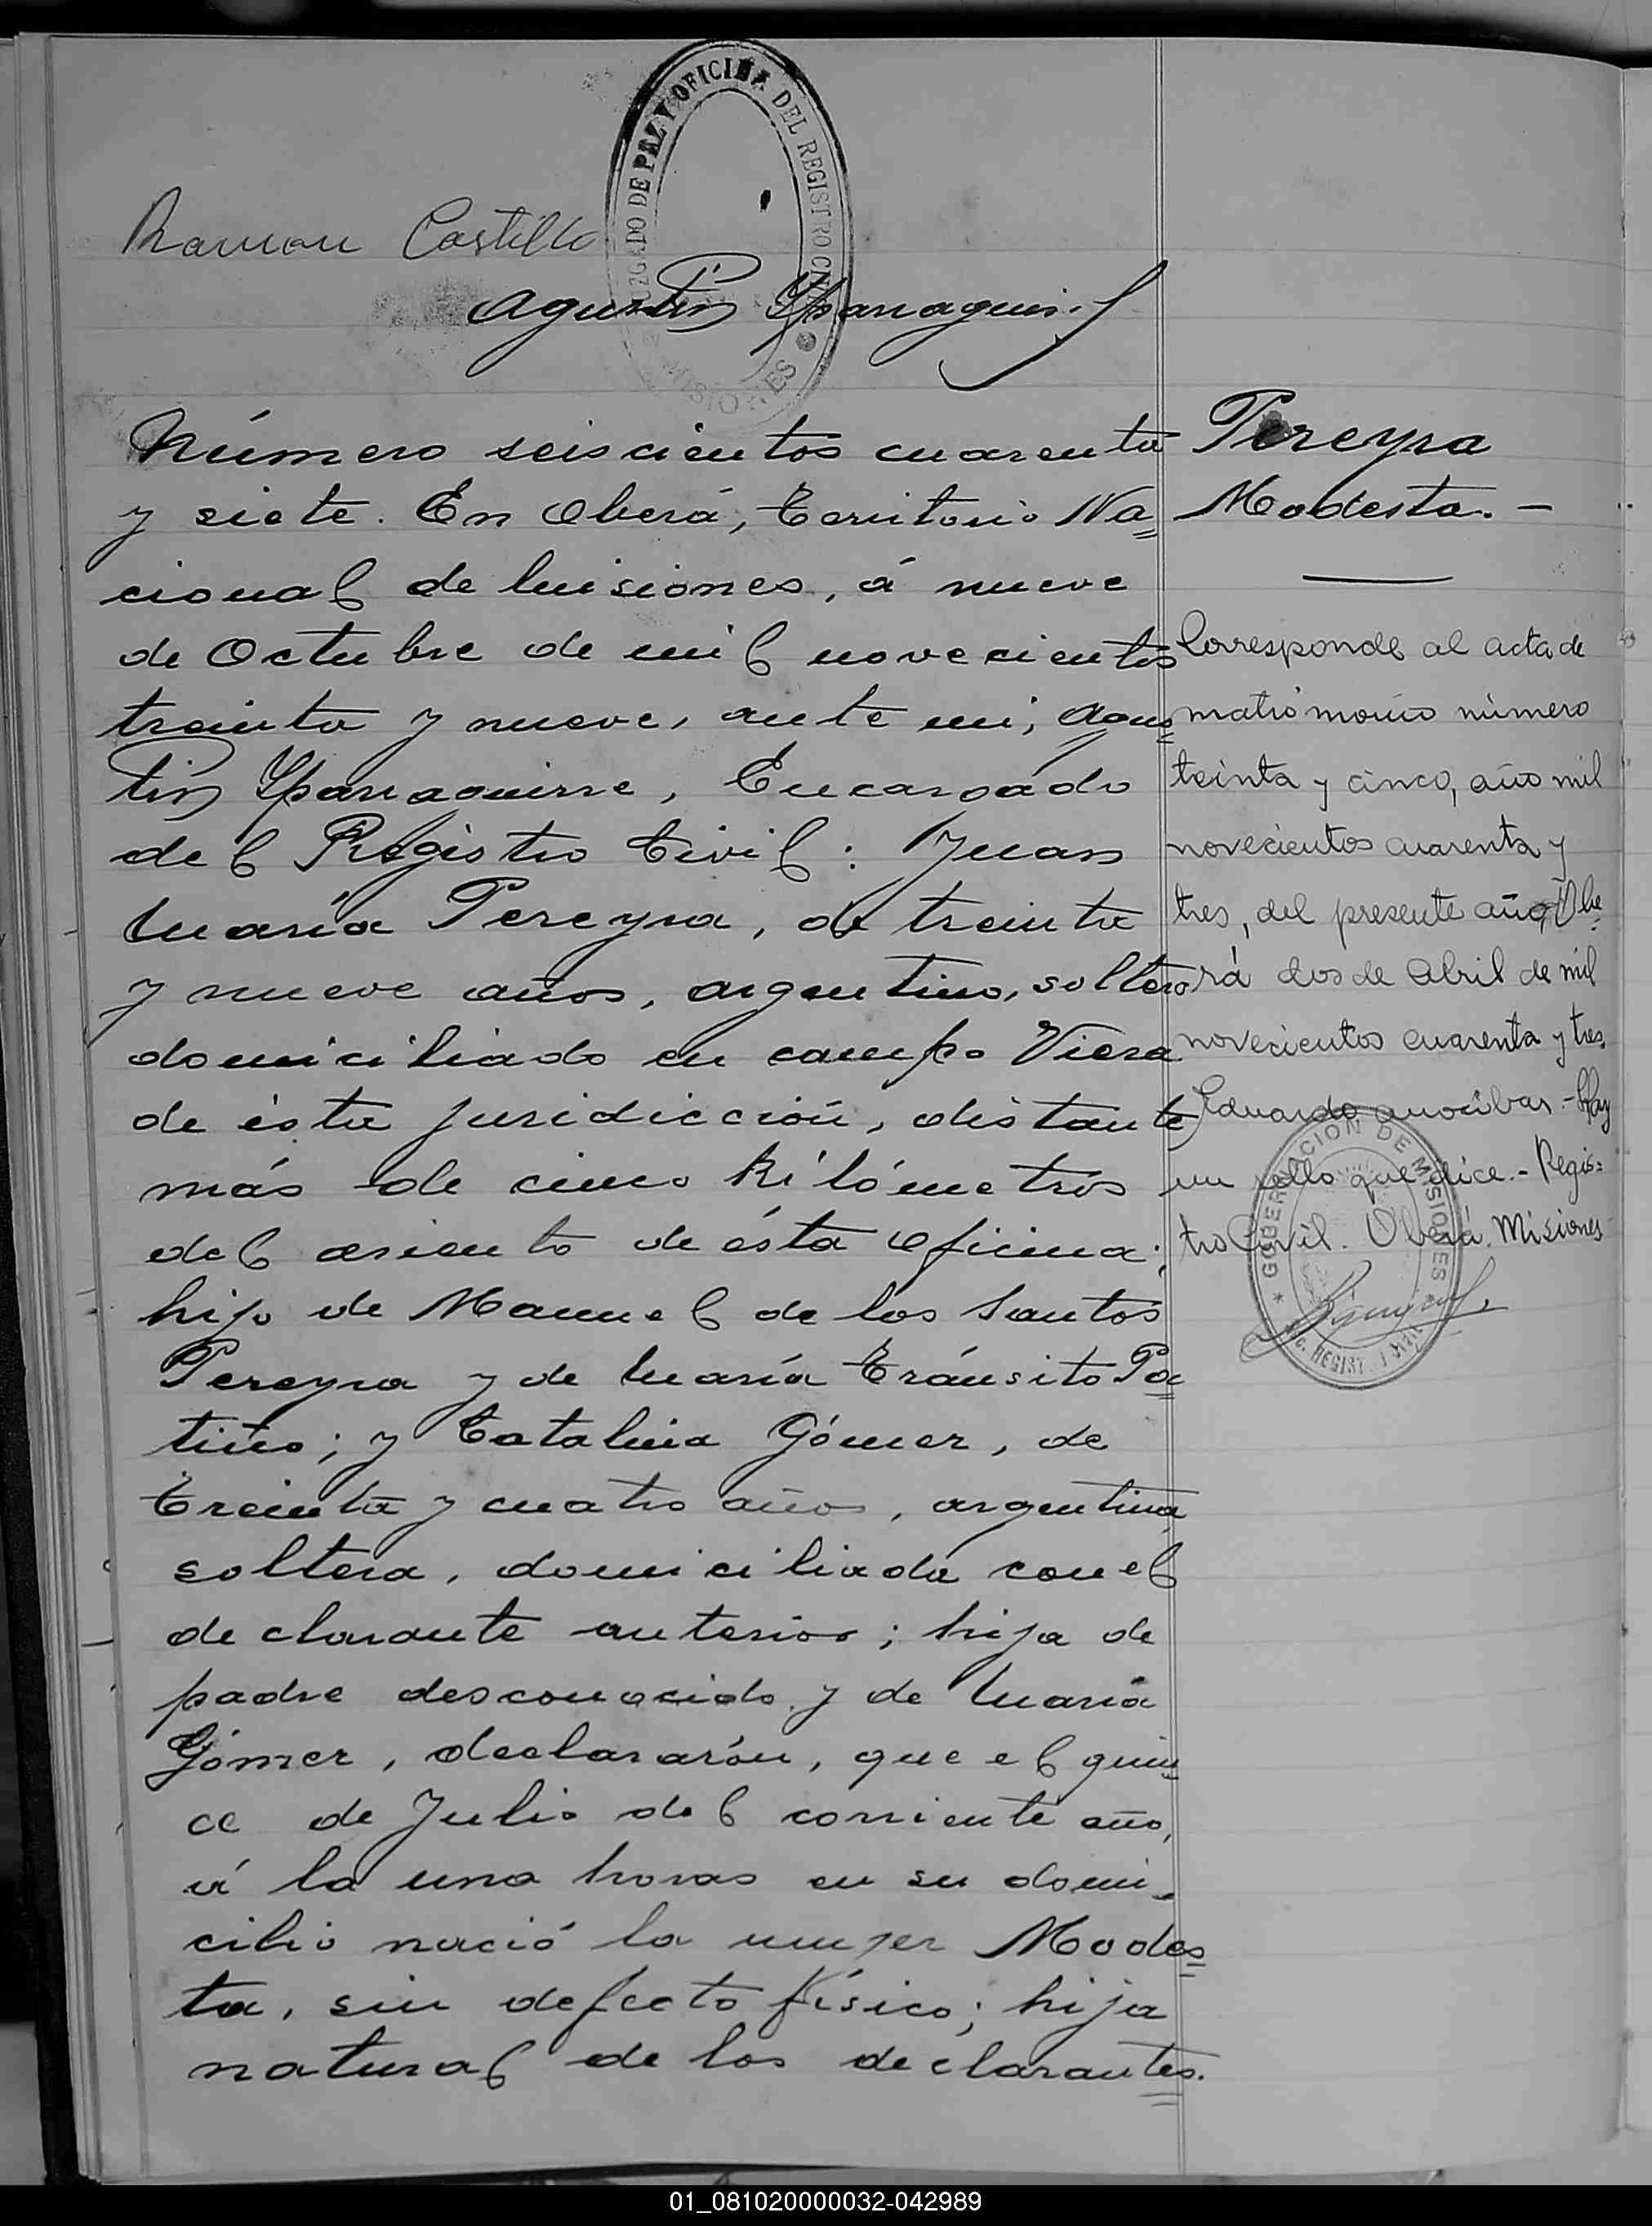 JUZGADO DE PAZ Y OFICINA DEL REGISTRO CIVIL
MISIONES
Ramon Castillo
Agustin Yparraguirre
Número seiscientos cuarenta
y siete. En Oberá, Territorio Na=
cional de Misiones, á nueve
de Octubre de mil novecientos
treinta y nueve, ante mi, Agus=
tin Yparraguirre, Encargado
del Registro Civil: Juan
María Pereyra, de treinta
y nueve años, argentino, soltero
domiciliado en campo Viera
de ésta juridicción, distante
más de cinco kilómetros
del asiento de ésta oficina;
hijo de Manuel de los Santos
Pereyra y de María Tránsito Pa=
tiño; y Catalina Gómez, de
treinta y cuatro años, argentina
soltera, domiciliada con el
declarante anterior; hija de
padre desconocido y de María
Gómez, declararón, que el quin=
ce de Julio del corriente año,
á la una horas en su domi-
cilio nació la mujer Modes=
ta, sin defecto físico; hija
natural de los declarantes.
Pereyra
Modesta. -
Corresponde al acta de
matrimonio número
treinta y cinco, año mil
novecientos cuarenta y
tres, del presente año, Obe=
rá dos de Abril de mil
novecientos cuarenta y tres.
Eduardo - Hay
un sello que dice.- Regis=
tro Civil. Oberá. Misiones
GOBERNACION DE MISIONES
01_081020000032-042989